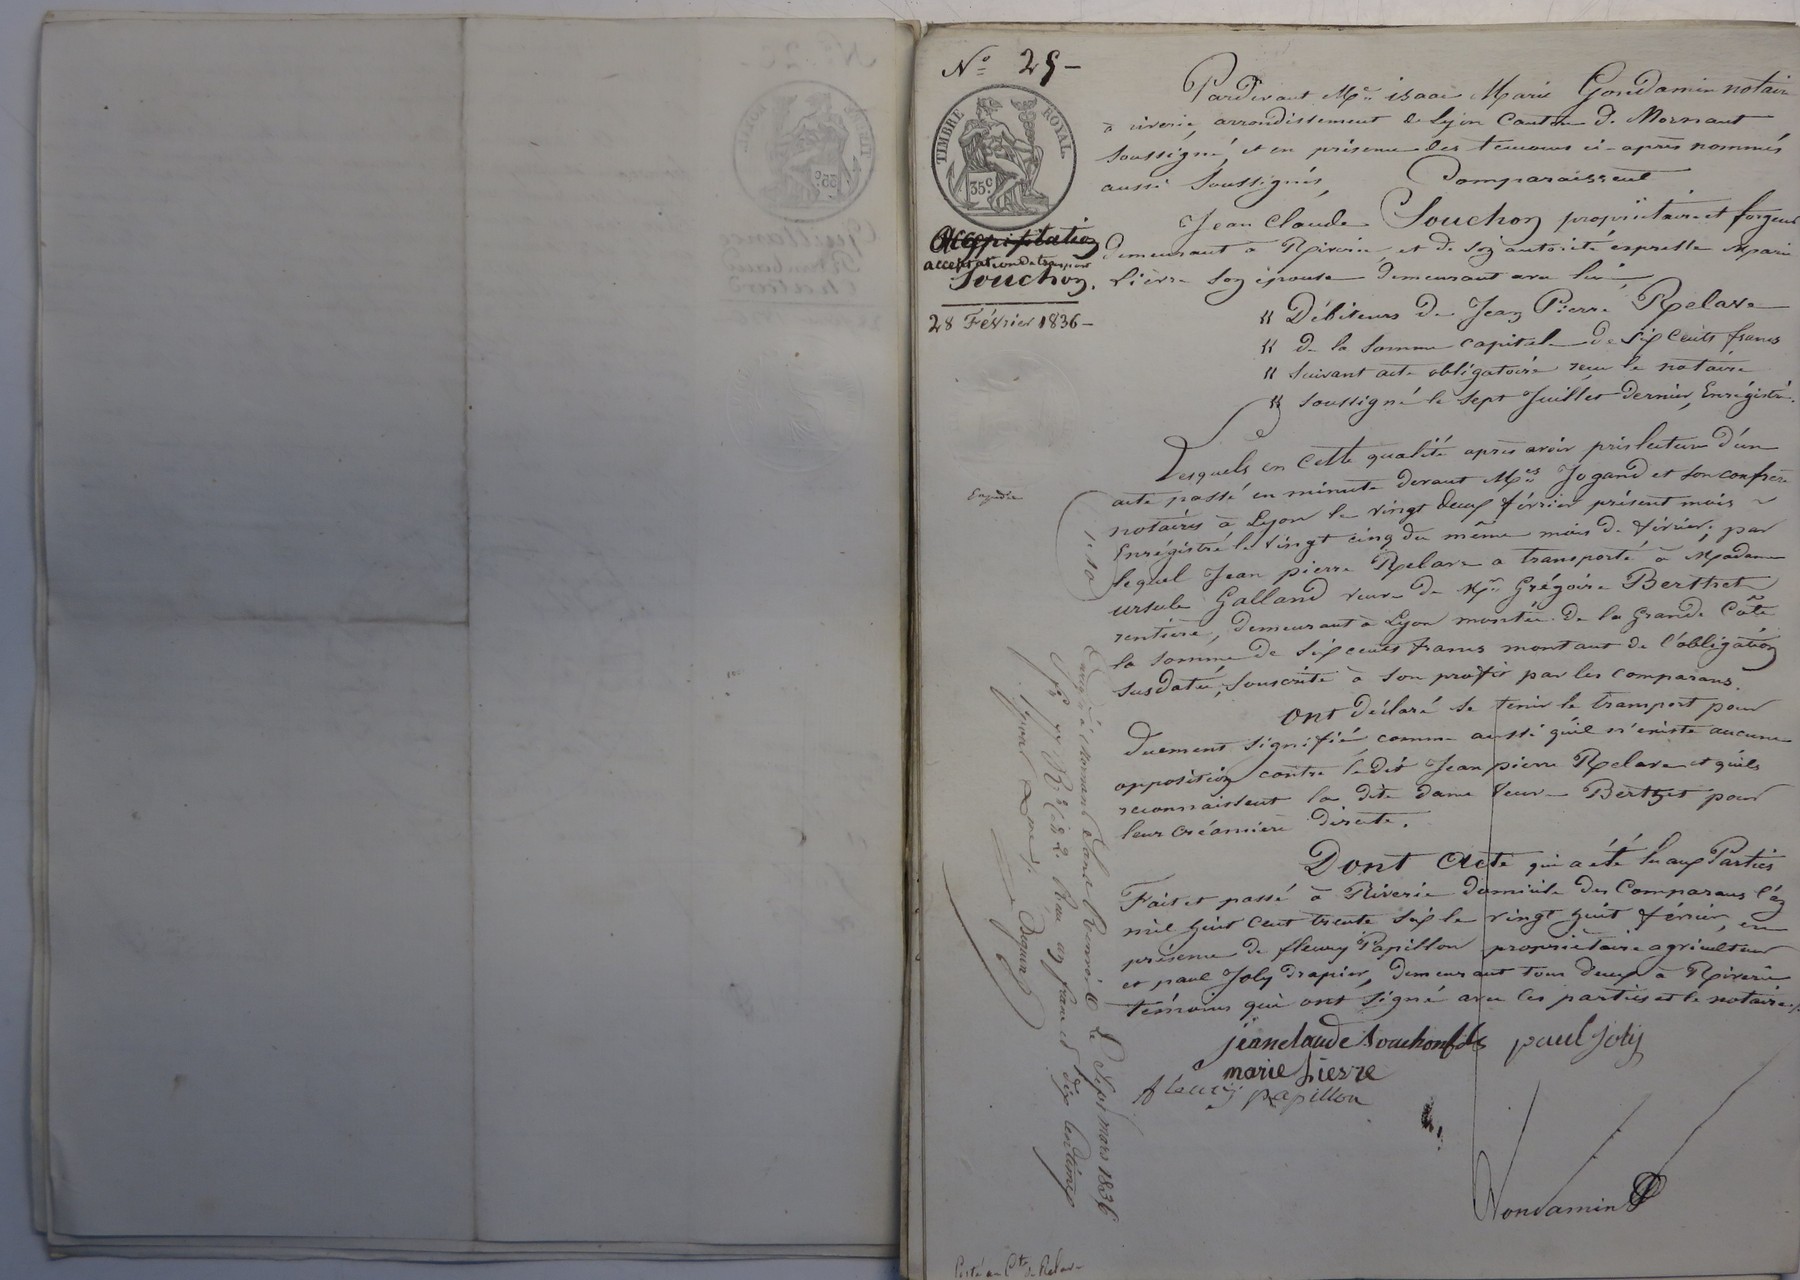 N° 25 –
TIMBRE ROYAL
35 c.
acceptation de transport
Souchon.
28 Février 1836 –
Expédié
1. 10
Pardevant Me isaac Marie Gondamin notaire
à riverie, arrondissement de Lyon Canton de Mornant
soussigné, et en présence des témoins ci-après nommés
aussi soussignés, Comparaissent
Jean Claude Souchon propriétaire et forgeur
demeurant à Riverie, et de son autorité expresse Marie
Pierre son épouse demeurant avec lui,
" Débiteurs de Jean Pierre Relave
" de la somme capitale de six cents francs
" suivant acte obligatoire reçu le notaire
" soussigné le sept Juillet dernier, Enrégistré.
Lesquels en cette qualité après avoir pris lecture d'un
acte passé en minute devant Mes Jogand et son confrère
notaires à Lyon le vingt deux février présent mois
Enrégistré le vingt cinq du même mois de février, par
lequel Jean pierre Relave a transporté à Madame
ursule Galland veuve de Mr Grégoire Berthet
rentière, demeurant à Lyon montée de la Grande Côte
la somme de six cents francs montant de l'obligation
susdatée, souscrite à son profit par les comparans.
ont déclaré se tenir le transport pour
duement signifié comme aussi qu'il n'existe aucune
opposition contre le dit Jean pierre Relave et qu'ils
reconnaissent la dite dame veuve Berthet pour
leur créancière directe.
Dont Acte qui a été lu aux Parties
Fait et passé à Riverie domicile des Comparans l'an
mil huit cent trente six le vingt huit février, en
présence de fleury Papillon propriétaire agriculteur
et paul Joly drapier, demeurant tous deux à Riverie
témoins qui ont signé avec les parties et le notaire.
jean claude Souchon fils paul Joly
marie pierre
fleury papillon
Gondamin
Enregistré à Mornant le Sept mars 1836
Reçu un franc et dix centimes
Porté au Cte de Relave